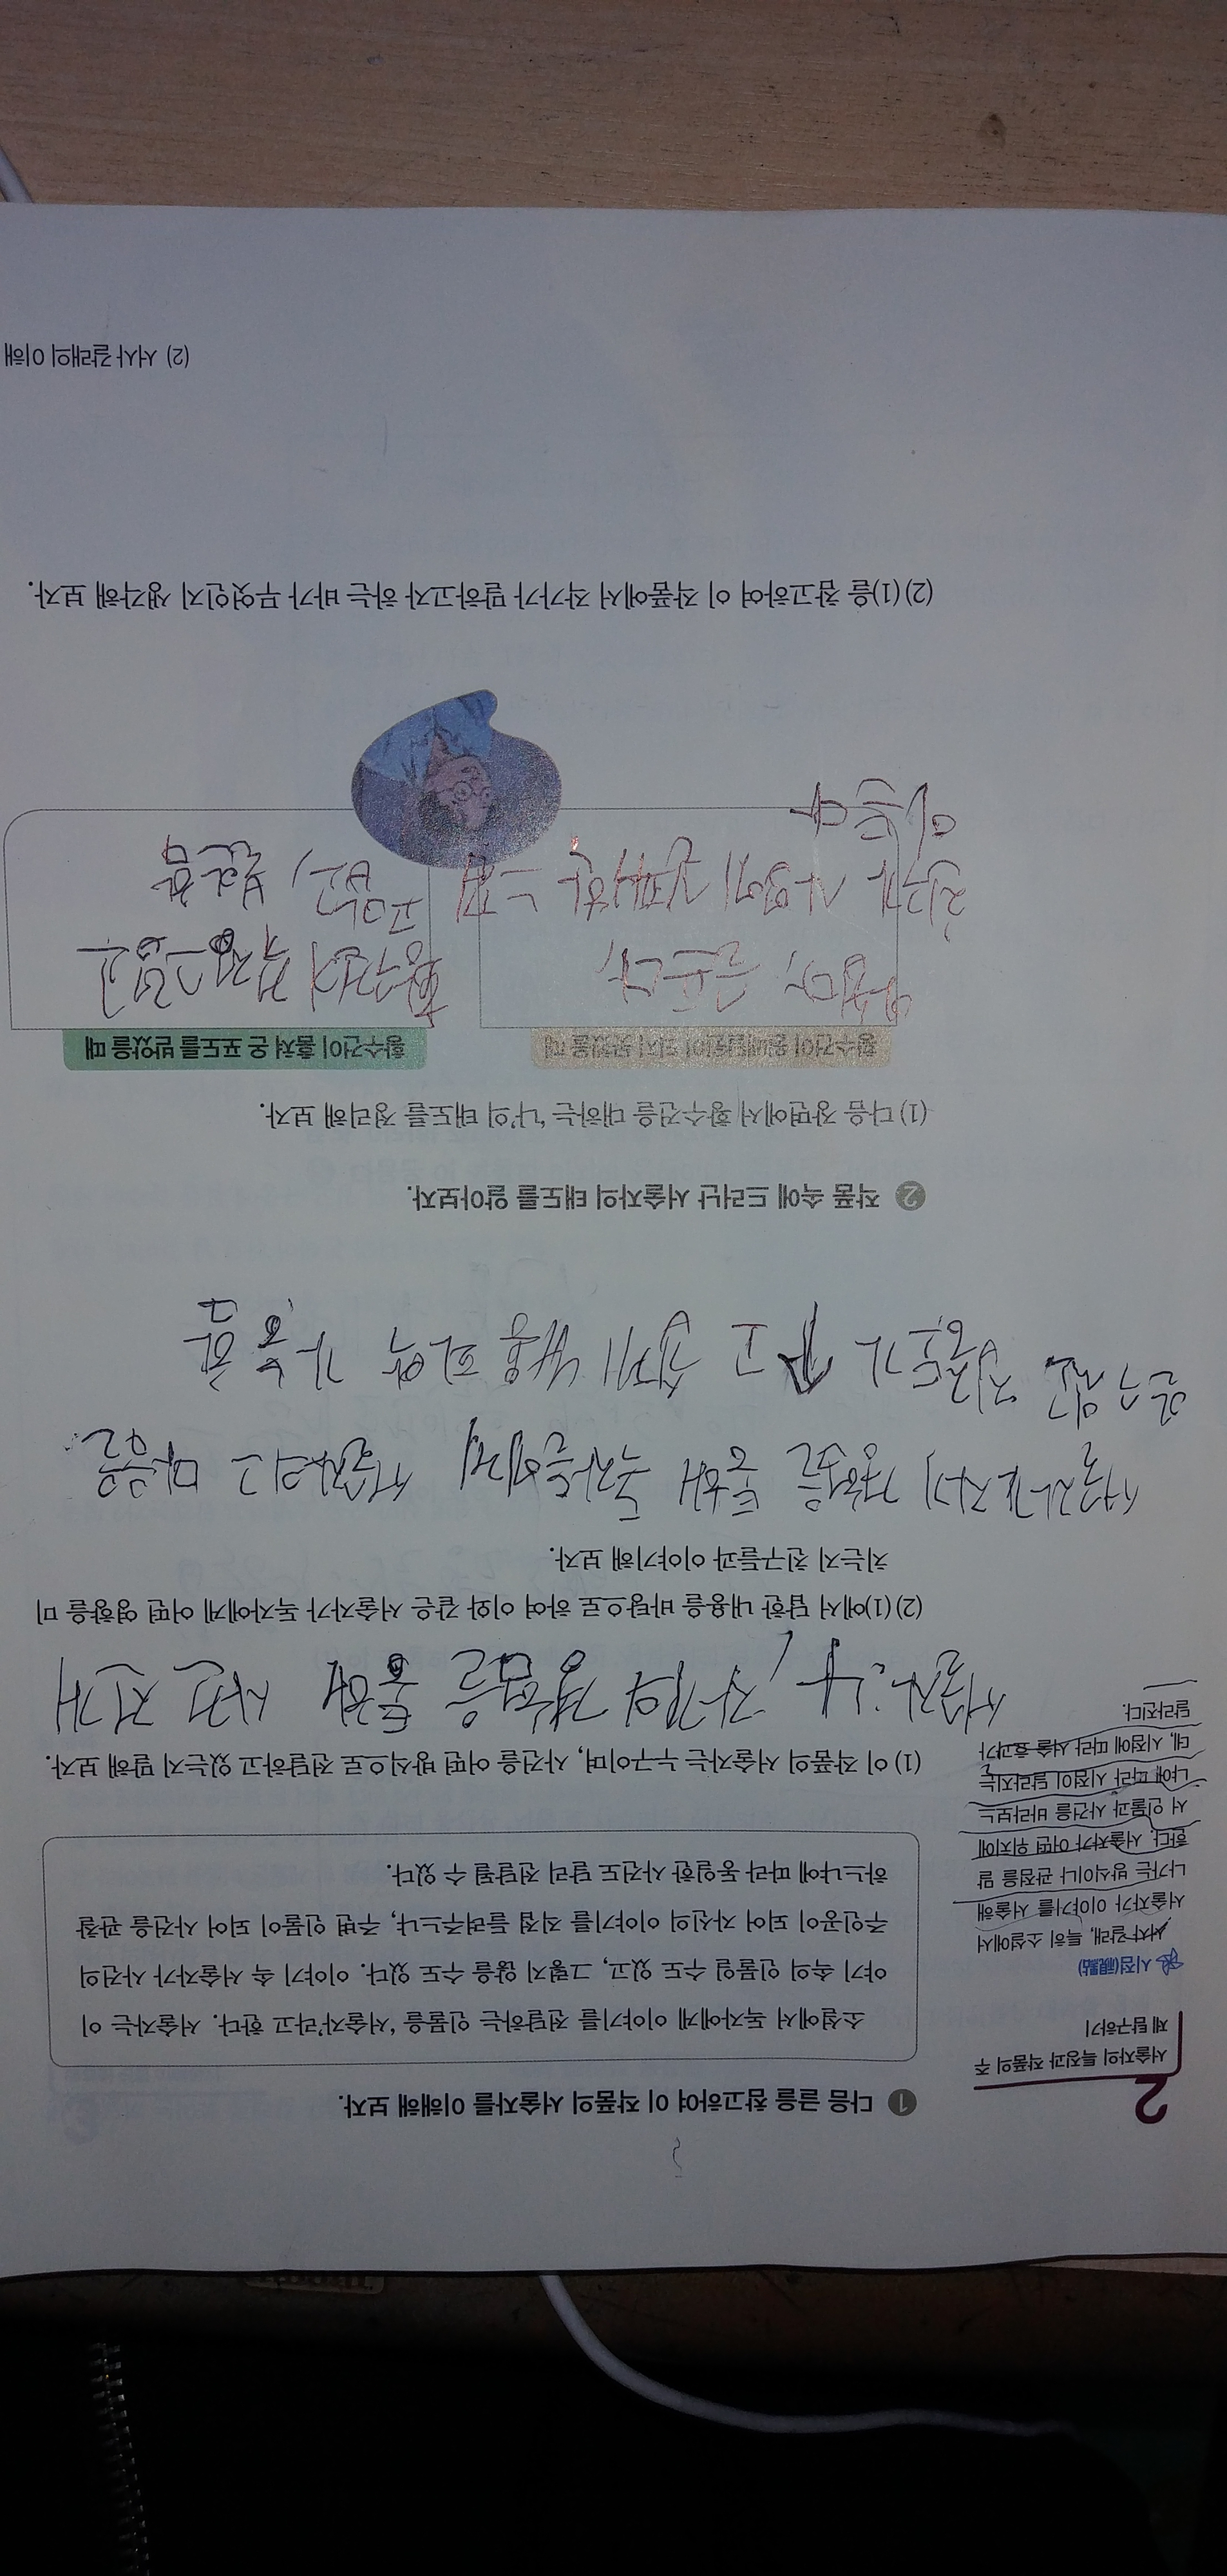 2
서술자의 특징과 작품의 주
제 탐구하기
1 다음 글을 참고하여 이 작품의 서술자를 이해해 보자.
소설에서 독자에게 이야기를 전달하는 인물을 ‘서술자’라고 한다. 서술자는 이
야기 속의 인물일 수도 있고, 그렇지 않을 수도 있다. 이야기 속 서술자가 사건의
주인공이 되어 자신의 이야기를 직접 들려주느냐, 주변 인물이 되어 사건을 관찰
하느냐에 따라 동일한 사건도 달리 전달될 수 있다.
시점(視點)
서사 갈래, 특히 소설에서
서술자가 이야기를 서술해
나가는 방식이나 관점을 말
한다. 서술자가 어떤 위치에
서 인물과 사건을 바라보느
냐에 따라 시점이 달라지는
데, 시점에 따라 서술 효과가
달라진다.
(1) 이 작품의 서술자는 누구이며, 사건을 어떤 방식으로 전달하고 있는지 말해 보자.
서술자: 나, 자기의 경험을 통해 사건 전개
(2) (1)에서 답한 내용을 바탕으로 하여 이와 같은 서술자가 독자에게 어떤 영향을 미
치는지 친구들과 이야기해 보자.
서술자가 자기 경험을 통해 독자들에게 서술자의 마음을
알 수 있고 집중도가 고 쉽게 내용 파악 가능함
2 작품 속에 드러난 서술자의 태도를 알아보자.
(1) 다음 장면에서 황수건을 대하는 ‘나’의 태도를 정리해 보자.
황수건이 원배달원이 되지 못했을 때
친구가 시험에 실패한 느낌
이 든다
황수건이 훔쳐 온 포도를 받았을 때
황수건이 걱정스럽고
고맙고, 불안함
(2) (1)을 참고하여 이 작품에서 작가가 말하고자 하는 바가 무엇인지 생각해 보자.
(2) 서사 갈래의 이해